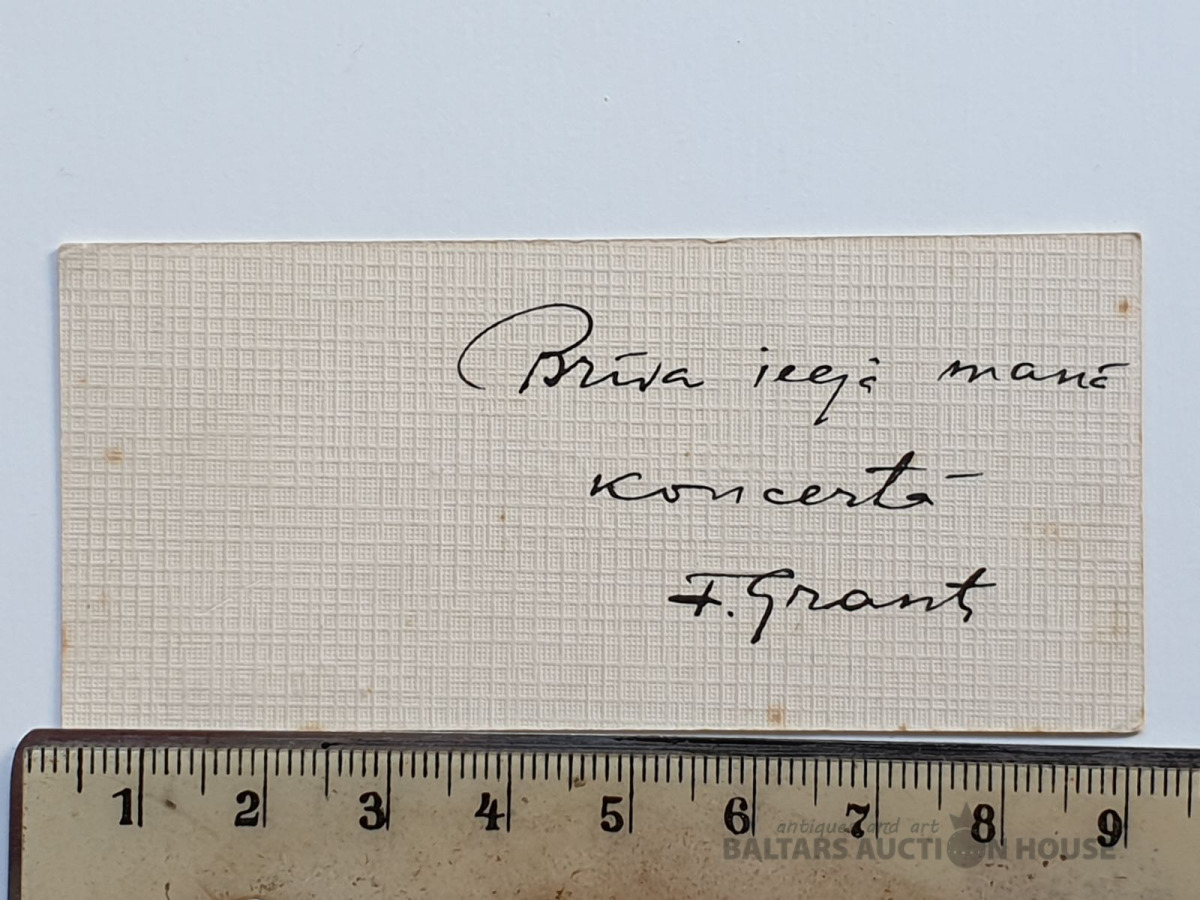 Brīva ieejā manā
koncertā
F. Grants
1 2 3 4 5 6 7 8 9
antiques and art
BALTARS AUCTION HOUSE